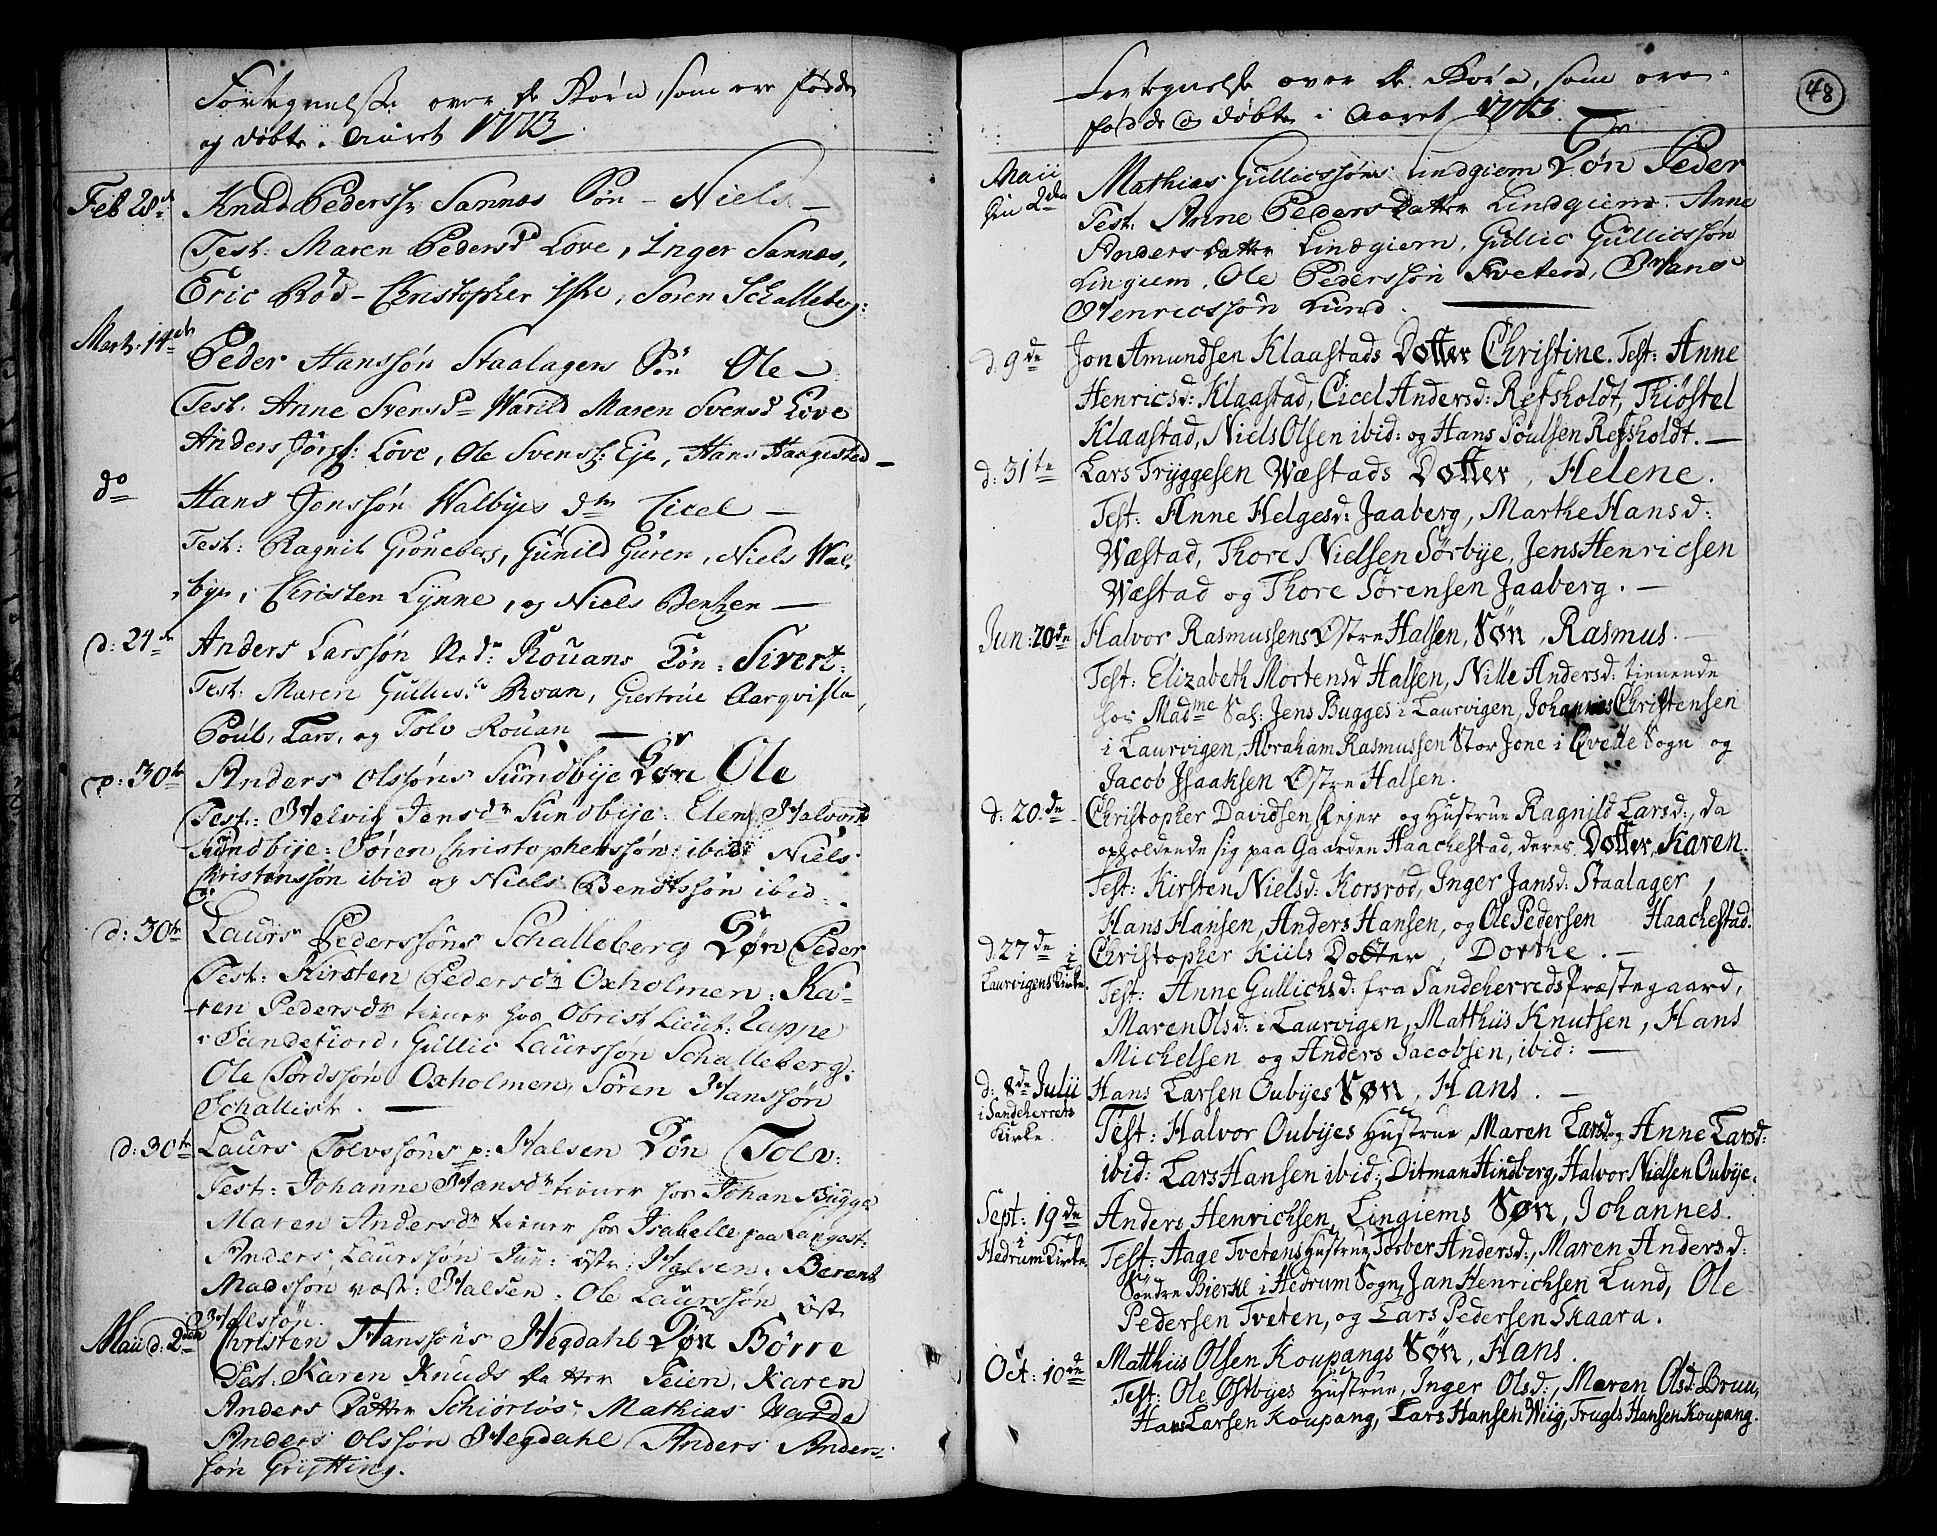 Fortegnelse over de Børn, som ere fødde
og døbte i Aaret 1773.
Feb 28de Knud Pederss: Sannæs Søn – Niels –
Test: Maren Pedersd Love, Inger Sannæs,
Eric Rød – Christopher Iske, Søren Schalleberg:
Mart: 14de Peder Hanssøn Staalagers Søn Ole –
Test. Anne Svensd Warild Maren Svensd Love
Anders Jørss: Love, Ole Svenss: Eje, Hans Haagested –
do Hans Jonssøn Walbyes dtr Cicel –
Test: Ragnil Grøneberg, Gunild Guren, Niels Wal-
bye, Christen Lynne, og Niels Bentzen –
d: 24de Anders Larssøn Ned: Rouans Søn: Sivert:
Test. Maren Gullics: Roan, Giertrue Aarqvisla,
Poul, Lars, og Tolv Rouan –
d: 30te Anders Olssøns Sundbye Søn Ole
Test: Helvig Jensdr Sundbye: Elen Halvorsd
Sundbye: Søren Christophenssøn ibid: Niels
Christenssøn ibid og Niels Bendtssøn ibid.
d: 30te Laurs Pederssøns Schalleberg Søn Peder
Test: Kirsten Pedersdr Oxholmen: Ka-
ren Pedersdr tiener hos Obrist Lieut: Zeppe
i Sandefiord, Gullic Laurssøn Schalleberg:
Ole Tordssøn Oxholmen, Søren Hanssøn
Schallist.
d: 30te Laurs Tolvssøns p: Halsen Søn Tolv:
Test: Johanne Hansdr tiener hos Johan Bugge
Maren Andersdr tiener hos Isabelle paa Langest:
Anders Laurssøn Jun: østr: Halsen: Berent
Madssøn væst: Halsen: Ole Laurssøn øst
Halssøn.
Maii d: 2den Christen Hanssøns Hegdahl Søn Børre
Test: Karen Knuds Datter Feien, Karen
Anders Datter Schiørløs: Mathias
Anders Olssøn Hegdahl Anders Anders-
søn Grytting.
48
Fortegnelse over de Børn, som ere
fødde og døbte i Aaret 1773.
Maii din 2den Mathias Gullicssøns Lindgiem Søn Peder
Test. Anne Peders Datter Lindgiem. Anne
Anders Datter Lindgiem, Gullic Gullicssøn
Lingiem, Ole Pederssøn Tveten, Hans
Henricssøn Lund.
d: 9de Jon Amundsen Klaastads Dotter Christine. Test: Anne
Henricsd: Klaastad, Cicel Andersd: Refsholdt, Thiøstel
Klaastad, Niels Olsen ibid: og Hans Poulsen Refsholdt. –
d: 31te Lars Tryggesen Wæstads Dotter, Helene.
Test: Anne Helgesd: Jaaberg, Marthe Hansd:
Wæstad, Thore Nielsen Sørbye, Jens Henricsen
Wæstad og Thore Sørensen Jaaberg. –
Jun: 20de Halvor Rasmussens Østre Halsen, Søn, Rasmus.
Test: Elizabeth Mortensd Halsen, Nille Andersd: tienende
hos Madme Sal: Jens Bugges i Laurvigen, Johannes Christensen
i Laurvigen, Abraham Rasmussen Stor Jone i Qvelle Sogn og
Jacob Isaaksen Østre Halsen.
d: 20.de Christopher Davidsen Lejer og Hustrue Ragnild Larsd:, da
opholdende sig paa Gaarden Haachestad, deres Dotter, Karen.
Test: Kirsten Nielsd: Korsrød, Inger Jansd: Staalager,
Hans Hansen, Anders Hansen, og Ole Pedersen Haachestad.
d: 27de i Laurvigens Kirke. Christopher Kiils Docter, Dorthe. –
Test: Anne Gullichsd: fra Sandeherreds Præstegaard,
Maren Olsd: i Laurvigen, Matthiis Knutsen, Hans
Michelsen og Anders Jacobsen, ibid: –
d: 8de Julii i Sandeherrets Kirke Hans Larsen Oubyes Søn, Hans. –
Test: Halvor Oubyes Hustrue, Maren Larsd og Anne Larsd:
ibid: Lars Hansen ibid: Ditman Hindberg, Halvor Nielsen Oubye.
Sept: 19de i Hedrum Kirke. Anders Henrichsen, Lingiems Søn, Johannes.
Test: Aage Tvetens Hustrue Torber Andersd:, Maren Andersd:
Søndre Bierke i Hedrum Sogn, Jan Henrichsen Lund, Ole
Pedersen Tveten, og Lars Pedersen Skaara.
Oct: 10de Matthiis Olsen Koupangs Søn, Hans.
Test: Ole Østbyes Hustrue, Inger Olsd:, Maren Olsd: Bruu,
Hans Larsen Koupang, Lars Hansen Wiig, Trugls Hansen Koupang.